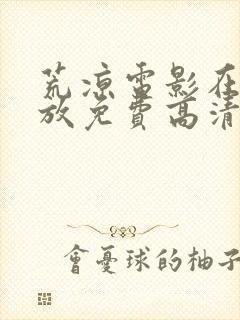 荒凉雷影在
放免费高清
會憂球的柚子